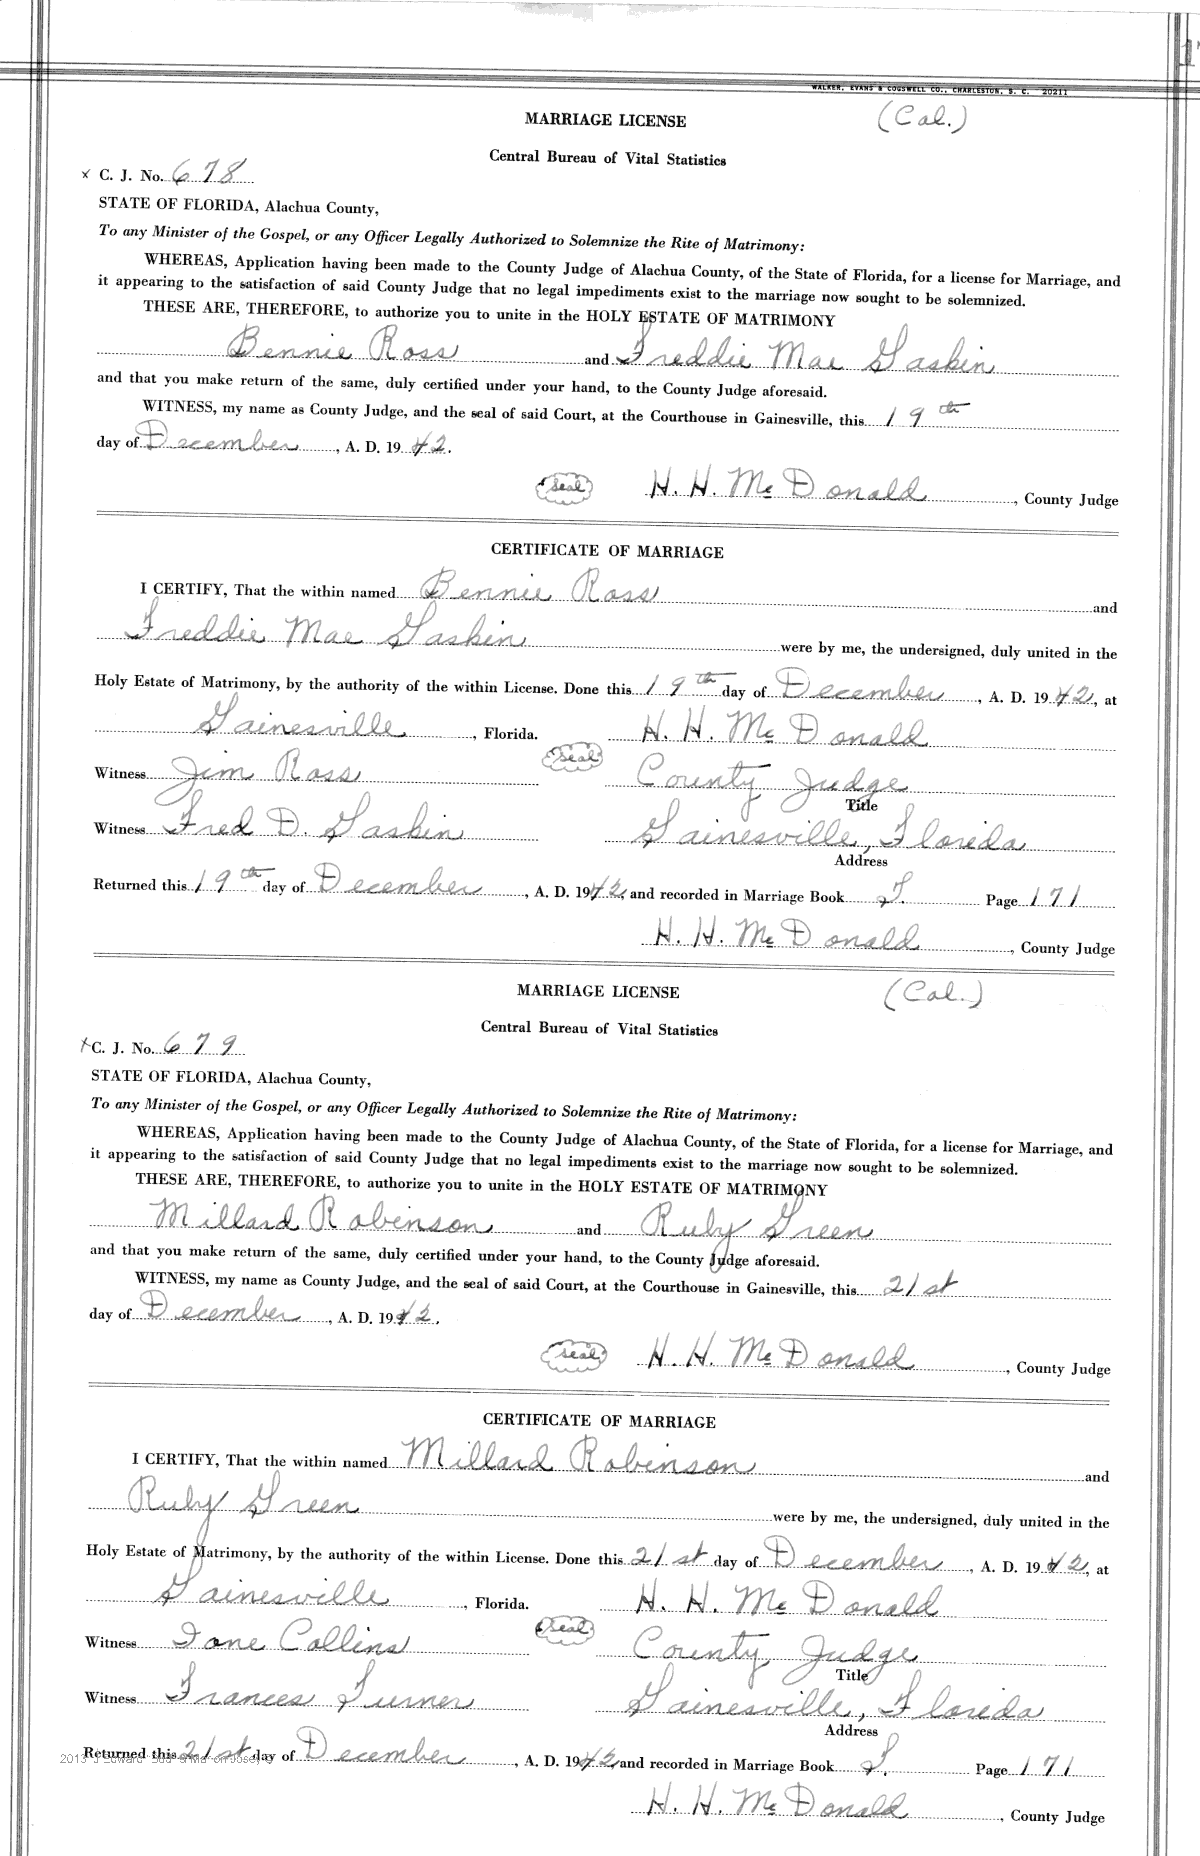 WALKER, EVANS & COGSWELL CO., CHARLESTON, S. C. 20211
MARRIAGE LICENSE (Cal.)
Central Bureau of Vital Statistics
x C. J. No. 678
STATE OF FLORIDA, Alachua County,
To any Minister of the Gospel, or any Officer Legally Authorized to Solemnize the Rite of Matrimony:
WHEREAS, Application having been made to the County Judge of Alachua County, of the State of Florida, for a license for Marriage, and
it appearing to the satisfaction of said County Judge that no legal impediments exist to the marriage now sought to be solemnized.
THESE ARE, THEREFORE, to authorize you to unite in the HOLY ESTATE OF MATRIMONY
Bennie Ross and Freddie Mae Gaskin
and that you make return of the same, duly certified under your hand, to the County Judge aforesaid.
WITNESS, my name as County Judge, and the seal of said Court, at the Courthouse in Gainesville, this 19th
day of December, A. D. 19 42.
Seal H. H. McDonald, County Judge
CERTIFICATE OF MARRIAGE
I CERTIFY, That the within named Bennie Ross and
Freddie Mae Gaskin were by me, the undersigned, duly united in the
Holy Estate of Matrimony, by the authority of the within License. Done this 19th day of December, A. D. 19 42, at
Gainesville, Florida. H. H. McDonald
Seal
Witness Jim Ross County Judge
Title
Witness Fred D. Gaskin Gainesville, Florida
Address
Returned this 19th day of December, A. D. 1942, and recorded in Marriage Book Page 171
H. H. McDonald, County Judge
MARRIAGE LICENSE (Cal.)
Central Bureau of Vital Statistics
x C. J. No. 679
STATE OF FLORIDA, Alachua County,
To any Minister of the Gospel, or any Officer Legally Authorized to Solemnize the Rite of Matrimony:
WHEREAS, Application having been made to the County Judge of Alachua County, of the State of Florida, for a license for Marriage, and
it appearing to the satisfaction of said County Judge that no legal impediments exist to the marriage now sought to be solemnized.
THESE ARE, THEREFORE, to authorize you to unite in the HOLY ESTATE OF MATRIMONY
Millard Robinson and Ruby Green
and that you make return of the same, duly certified under your hand, to the County Judge aforesaid.
WITNESS, my name as County Judge, and the seal of said Court, at the Courthouse in Gainesville, this 21st
day of December, A. D. 1942.
Seal H. H. McDonald, County Judge
CERTIFICATE OF MARRIAGE
I CERTIFY, That the within named Millard Robinson and
Ruby Green were by me, the undersigned, duly united in the
Holy Estate of Matrimony, by the authority of the within License. Done this 21st day of December, A. D. 19 42, at
Gainesville, Florida. H. H. McDonald
Seal
Witness Ione Collins County Judge
Title
Witness Frances Turner Gainesville, Florida
Address
Returned this 21st day of December, A. D. 1942 and recorded in Marriage Book Page 171
H. H. McDonald, County Judge